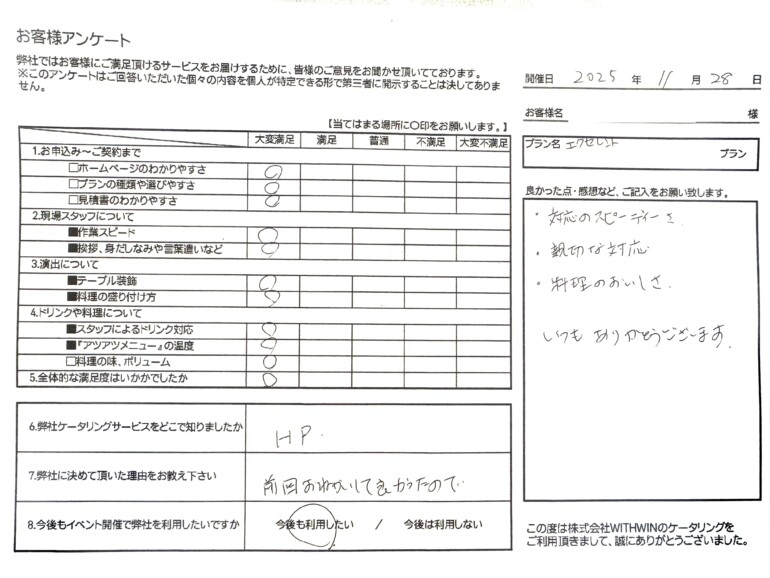 お客様アンケート
弊社ではお客様にご満足頂けるサービスをお届けするために、皆様のご意見をお聞かせ頂いております。
※このアンケートはご回答いただいた個々の内容を個人が特定できる形で第三者に開示することは決してありま
せん。
開催日 2025 年 11 月 28 日
お客様名 様
プラン名 エクセレント
プラン
【当てはまる場所に〇印をお願いします。】
大変満足 満足 普通 不満足 大変不満足
1.お申込み～ご契約まで
□ホームページのわかりやすさ 〇
□プランの種類や選びやすさ 〇
□見積書のわかりやすさ 〇
2.現場スタッフについて
■作業スピード 〇
■挨拶、身だしなみや言葉遣いなど 〇
3.演出について
■テーブル装飾 〇
■料理の盛り付け方 〇
4.ドリンクや料理について
■スタッフによるドリンク対応 〇
■『アツアツメニュー』の温度 〇
□料理の味、ボリューム 〇
5.全体的な満足度はいかがでしたか 〇
6.弊社ケータリングサービスをどこで知りましたか HP.
7.弊社に決めて頂いた理由をお教え下さい 前回おねがいして良かったので
8.今後もイベント開催で弊社を利用したいですか 今後も利用したい / 今後は利用しない
良かった点・感想など、ご記入をお願い致します。
・対応のスピーディーさ
・親切な対応
・料理のおいしさ
いつもありがとうございます。
この度は株式会社WITHWINのケータリングを
ご利用頂きまして、誠にありがとうございました。